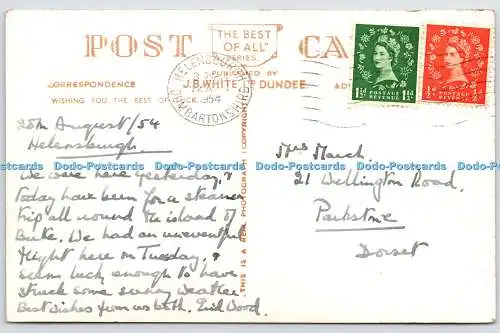 POST CA
"THE BEST
OF ALL"
SERIES.
PUBLISHED BY
J.B.WHITE LTD DUNDEE
CORRESPONDENCE
AD
WISHING YOU THE BEST OF LUCK
HELENSBURGH
1954
DUMBARTONSHIRE
1½D POSTAGE REVENUE 1½D
½D POSTAGE REVENUE ½D
25th August/54
Helensburgh.
We were here yesterday, &
today have been for a steamer
trip all round the island of
Bute. We had an uneventful
flight here on Tuesday, &
seems lucky enough to have
struck some sunny weather.
Best wishes from us both. Enid Wood.
THIS IS A REAL PHOTOGRAPH (COPYRIGHT)
Mrs March,
21 Wellington Road,
Parkstone
Dorset
www.postcardsworldwide.co.uk